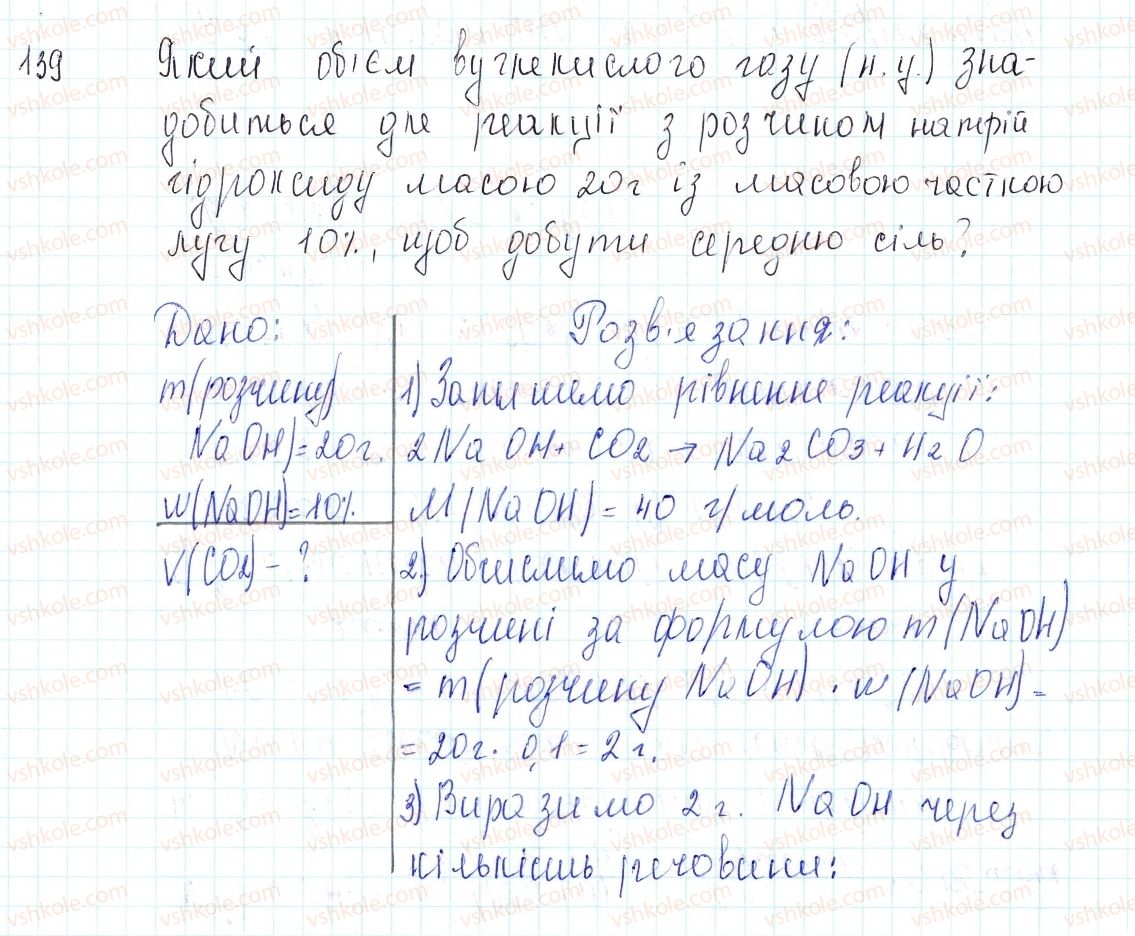 139 Який обієм вуглекислого газу (н.у.) зна-
добиться для реакції з розчином натрій
гідроксиду масою 20г із масовою часткою
лугу 10%, щоб добути середню сіль?
Дано:
m(розчину)
NaOH)=20г.
w(NaOH)=10%
V(CO2) - ?
Розв'язання:
1) Запишемо рівняння реакції:
2NaOH + CO2 → Na2CO3 + H2O
M(NaOH) = 40 г/моль.
2) Обчислимо масу NaOH у
розчині за формулою m(NaOH)
= m(розчину NaOH) · w(NaOH) =
= 20г. · 0,1 = 2 г.
3) Виразимо 2 г. NaOH через
кількість речовини:
vshkole.com